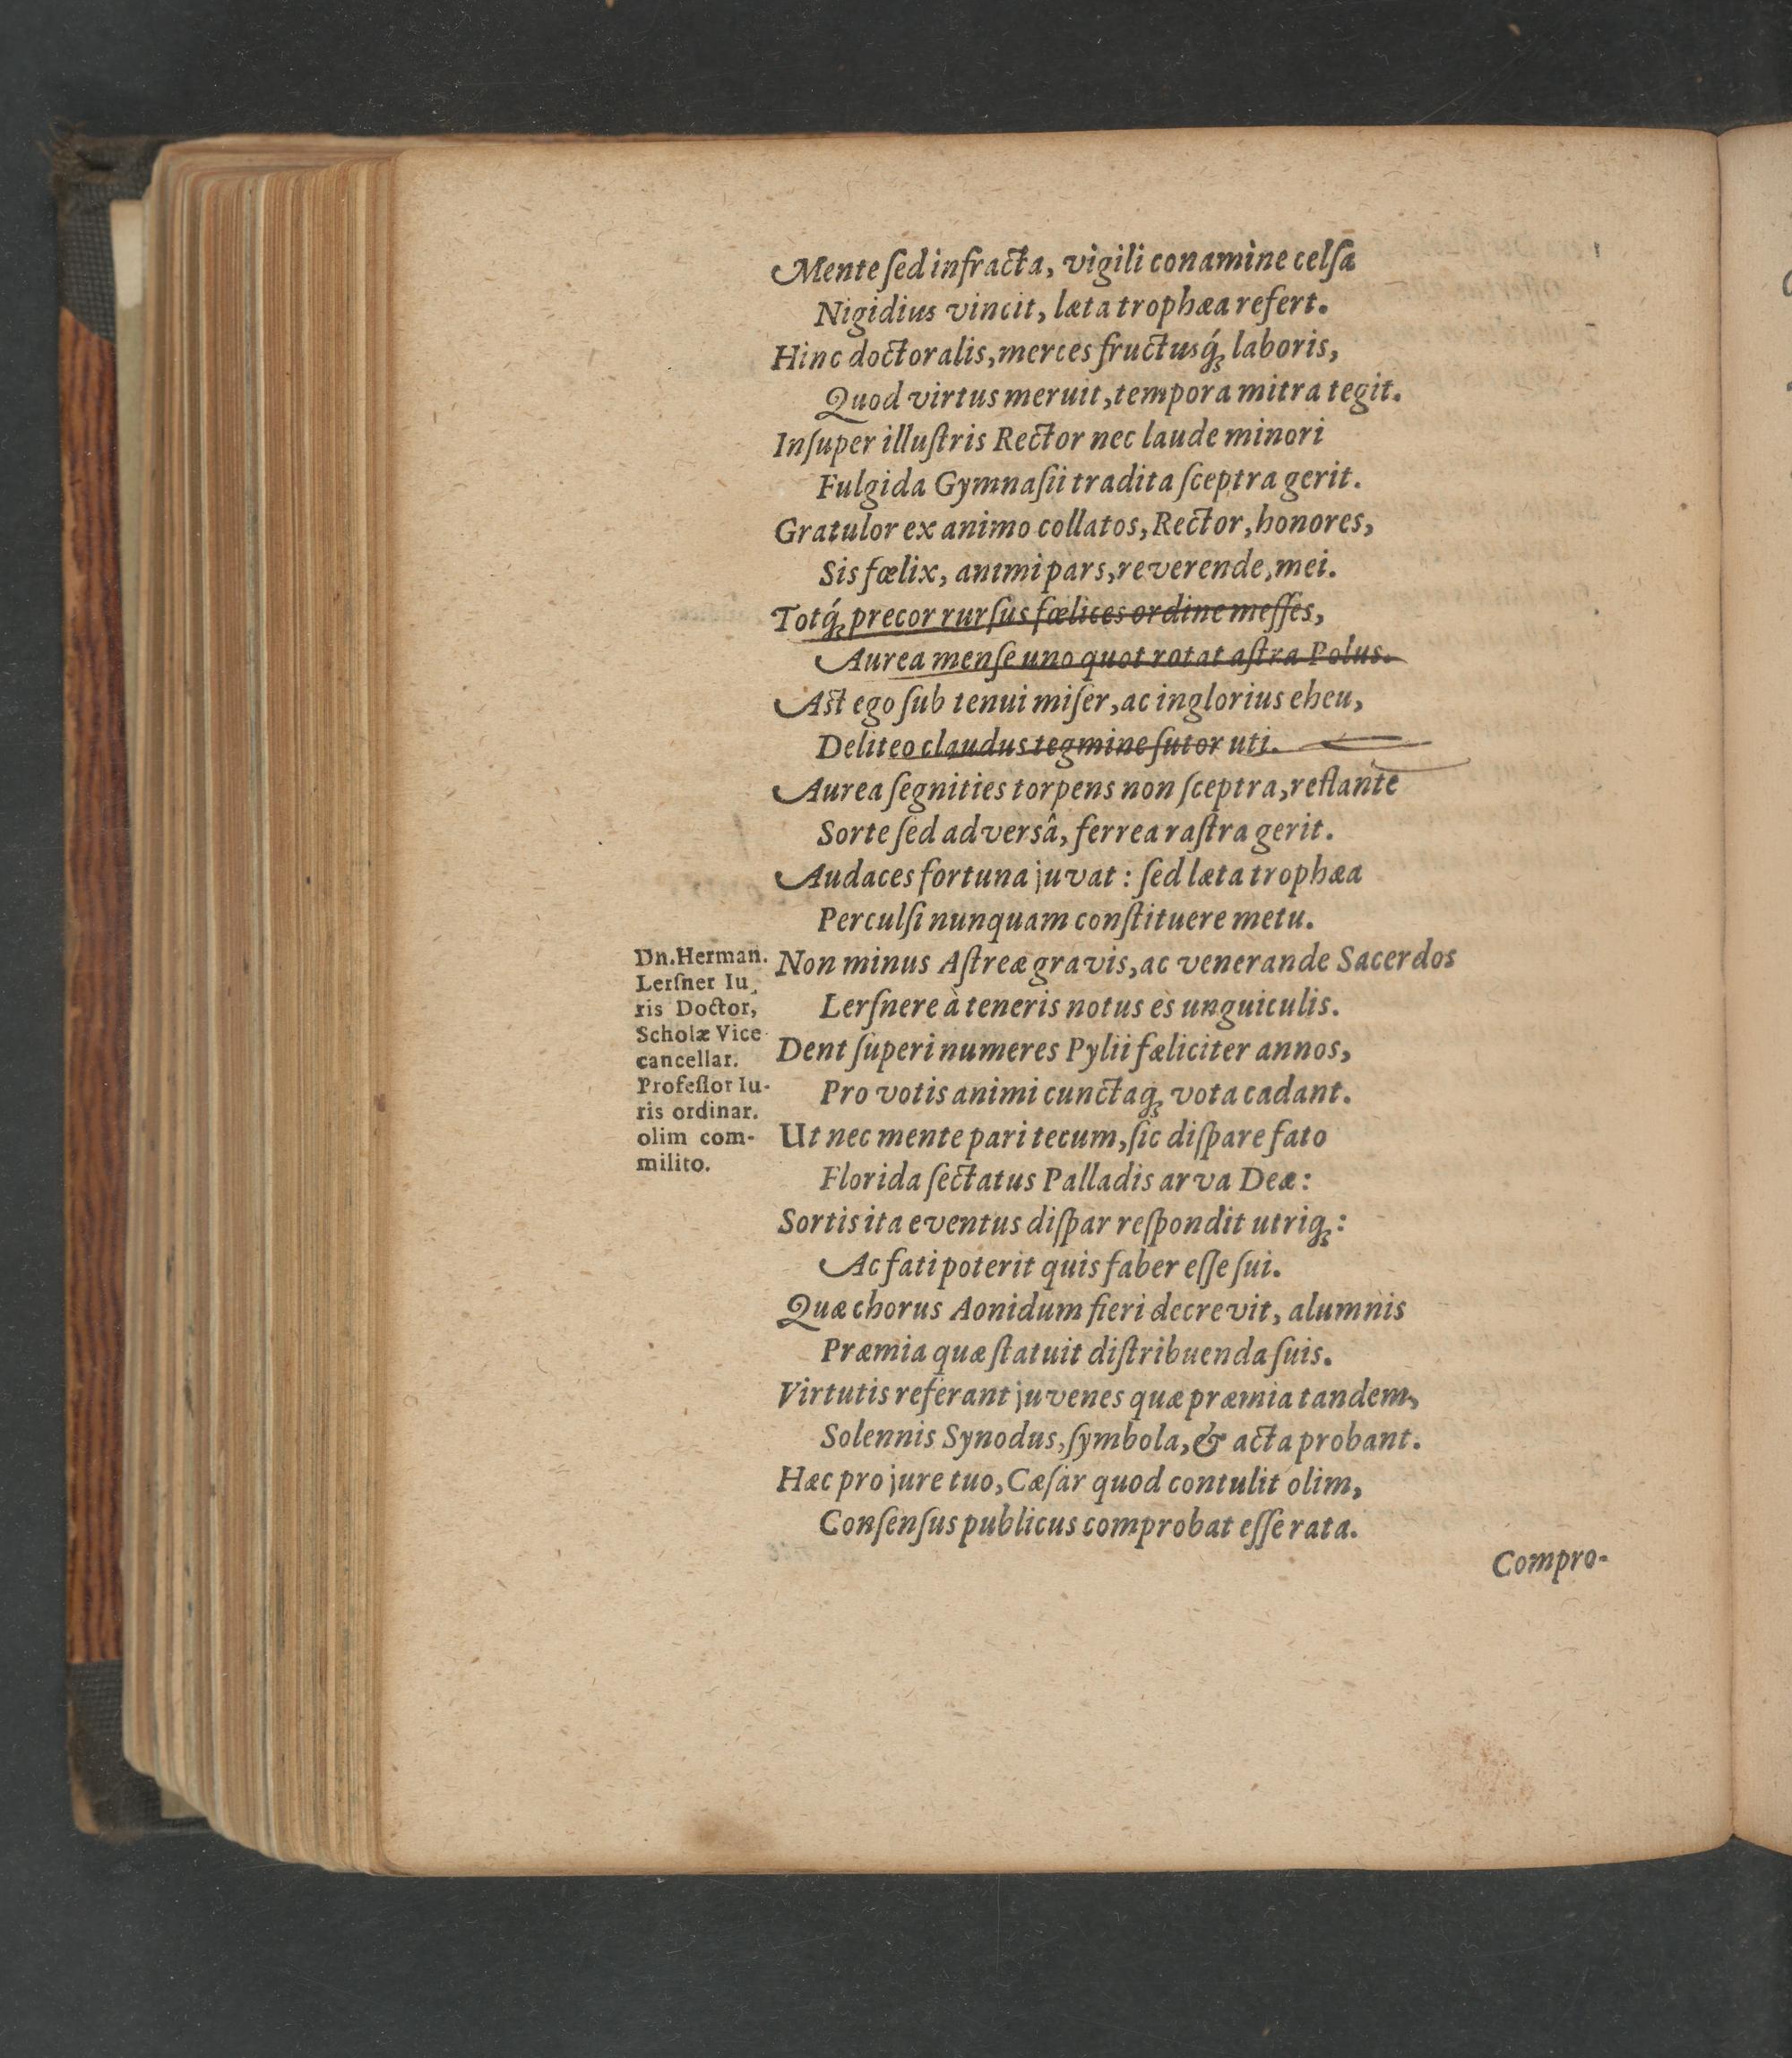 Mente ſed infracta, vigili conamine celſa
Nigidius vincit, læta trophæa refert.
Hinc doctoralis, merces fructusq́ꝫ laboris,
Quod virtus meruit, tempora mitra tegit.
Inſuper illuſtris Rector nec laude minori
Fulgida Gymnaſii tradita ſceptra gerit.
Gratulor ex animo collatos, Rector, honores,
Sis fœlix, animi pars, reverende, mei.
Totq́ꝫ precor rurſus fœlices ordine meſſes,
Aurea menſe uno quot rotat aſtra Polus.
Aſt ego ſub tenui miſer, ac inglorius eheu,
Deliteo claudus tegmine ſutor uti.
Aurea ſegnities torpens non ſceptra, reflante
Sorte ſed adversâ, ferrea raſtra gerit.
Audaces fortuna juvat: ſed læta trophæa
Perculſi nunquam conſtituere metu.
Dn. Herman.
Lerſner Iu-
ris Doctor,
Scholæ Vice
cancellar.
Profeſſor Iu-
ris ordinar.
olim com-
milito.
Non minus Aſtreæ gravis, ac venerande Sacerdos
Lerſnere à teneris notus es unguiculis.
Dent ſuperi numeres Pylii fæliciter annos,
Pro votis animi cunctaqꝫ vota cadant.
Ut nec mente pari tecum, ſic diſpare fato
Florida ſectatus Palladis arva Deæ:
Sortis ita eventus diſpar reſpondit utriqꝫ:
Ac fati poterit quis faber eſſe ſui.
Quæ chorus Aonidum fieri decrevit, alumnis
Præmia quæ ſtatuit diſtribuenda ſuis.
Virtutis referant juvenes quæ præmia tandem,
Solennis Synodus, ſymbola, & acta probant.
Hæc pro jure tuo, Cæſar quod contulit olim,
Conſenſus publicus comprobat eſſe rata.
Compro-